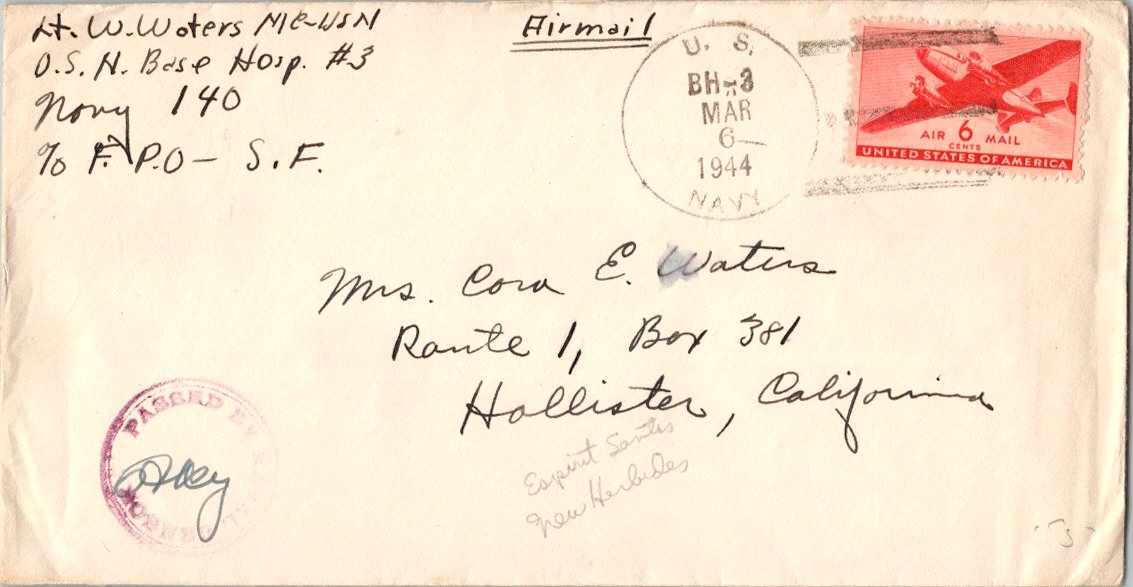 Lt. W. Waters MC-USN
U.S.N. Base Hosp. #3
Navy 140
℅ F.P.O - S.F.
Airmail
U. S.
BH-3
MAR
6
1944
NAVY
AIR 6 MAIL
CENTS
UNITED STATES OF AMERICA
Mrs. Cora E. Waters
Route 1, Box 381
Hollister, California
PASSED BY NAVAL CENSOR
Espirit Santos
New Herbides